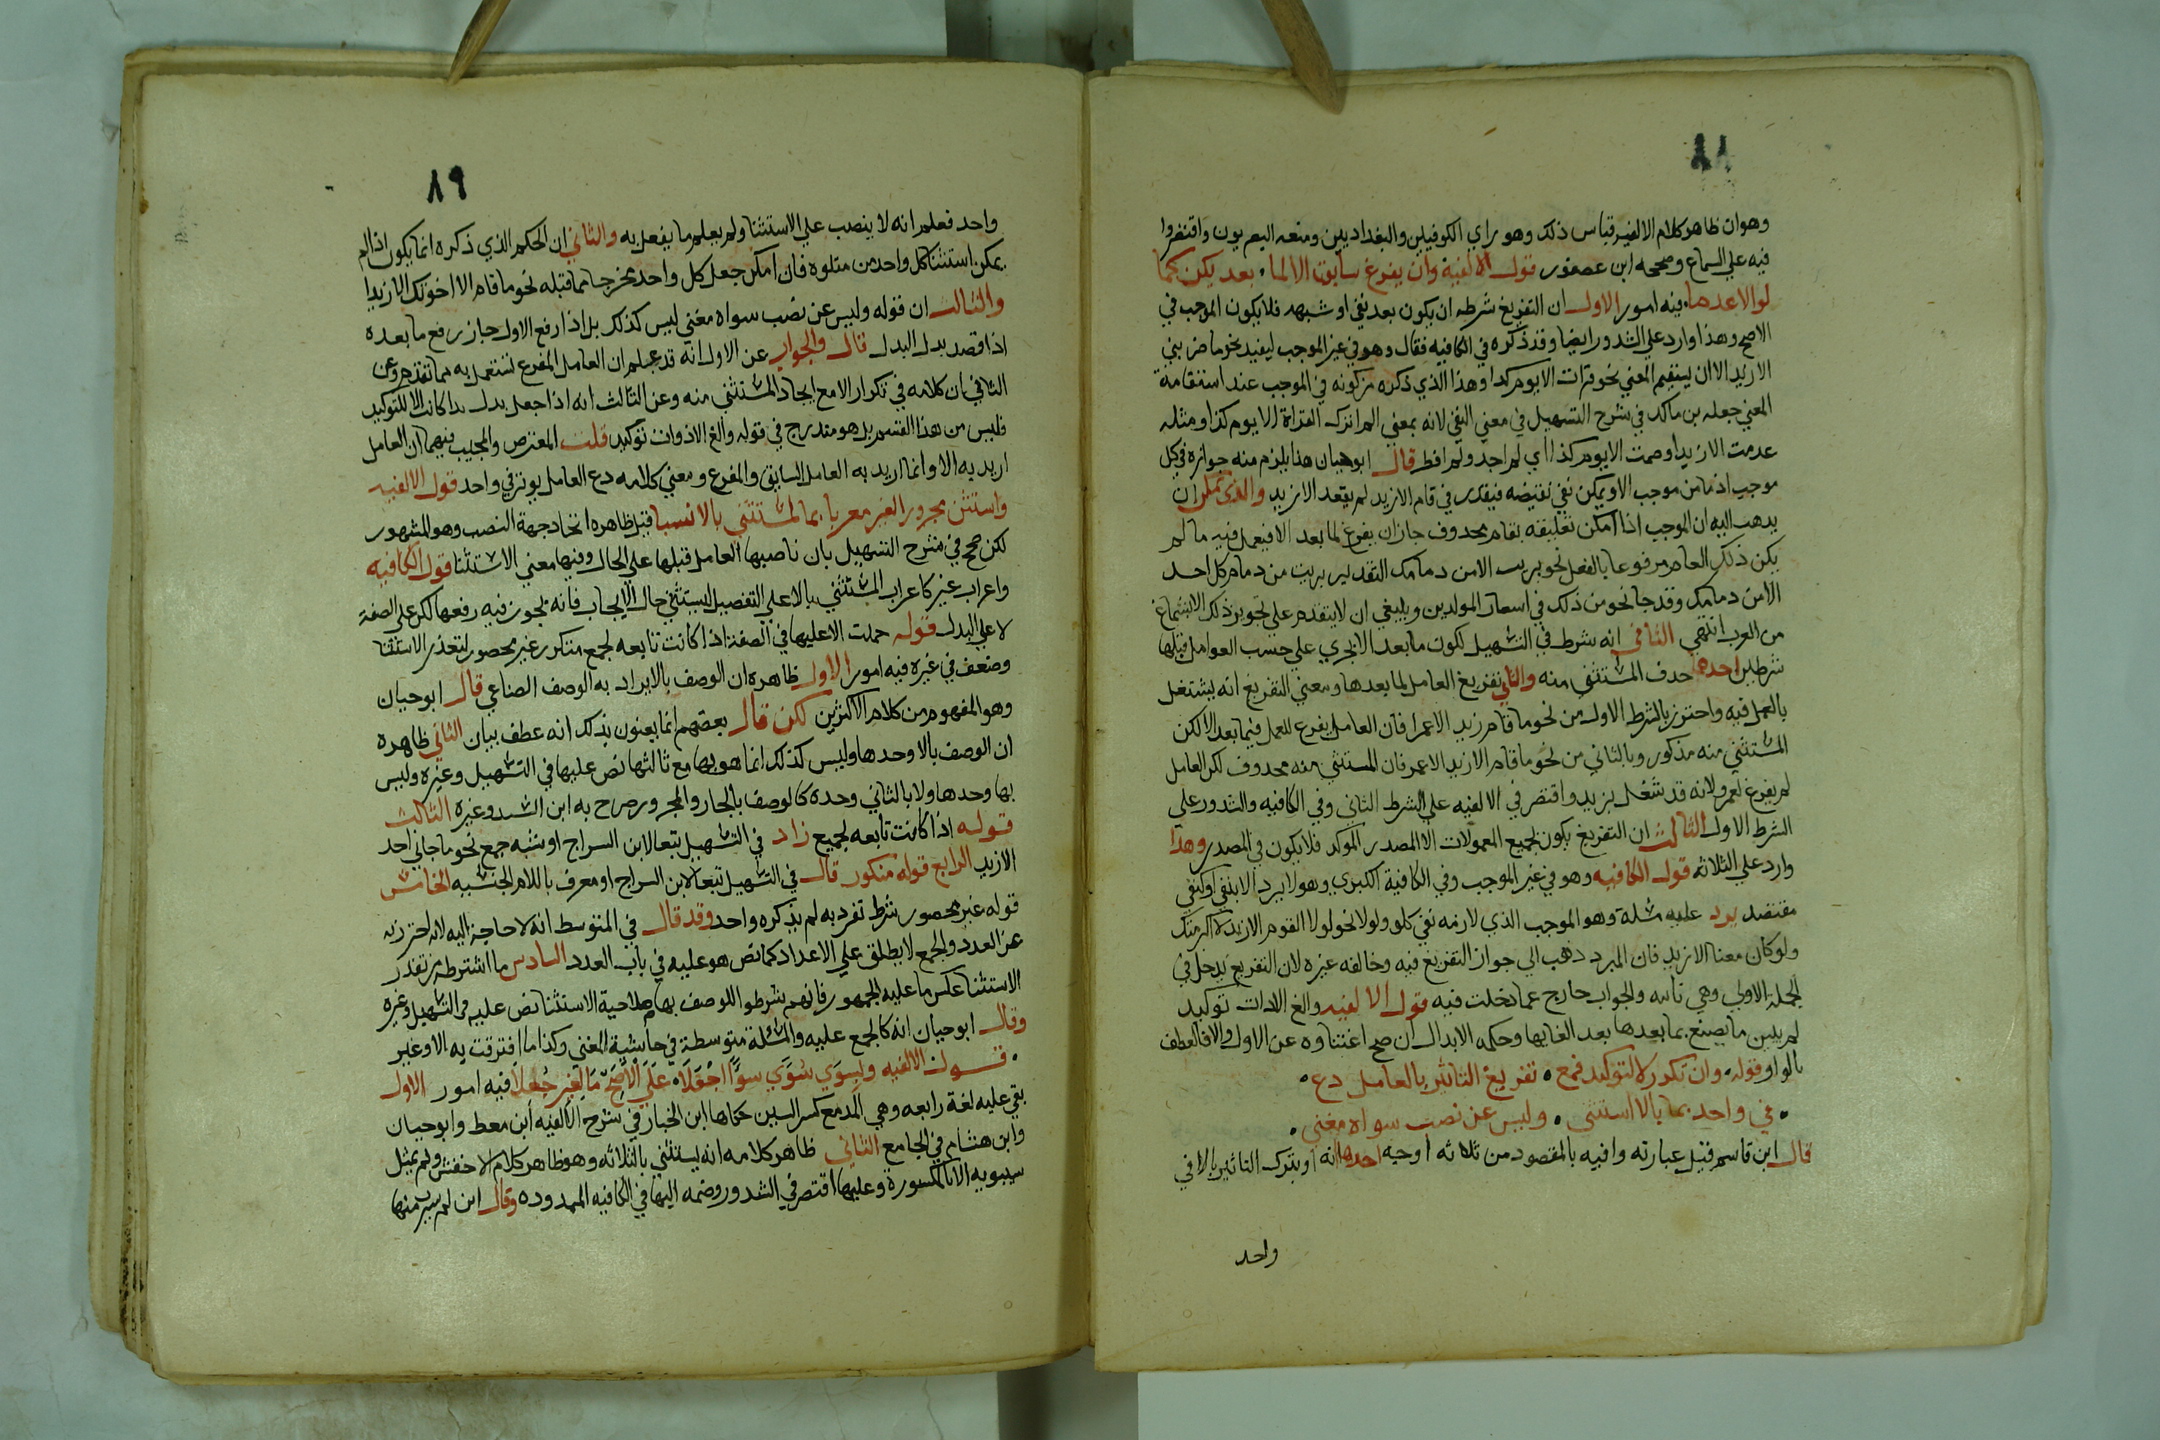 ٨٨
وهو ان ظاهر كلام الالفية قياس ذلك وهو راي الكوفيين والبغداديين ومنعه البصريون واقتصروا
فيه على السماع وصححه ابن عصفور قول الالفية وان يفرغ سابق الا لما بعد يكن كما
لو الا عدما فيه امور الاول ان التفريغ شرطه ان يكون بعد نفي او شبهه فلا يكون الموجب في
الاصح وهذا وارد على الشذور ايضا وقد ذكره في الكافيه فقال وهو في غير الموجب ليفيد نحو ما ضربني
الا زيد الا ان يستقيم المعني نحو قرات الا يوم كدا وهذا الذي ذكره من كونه في الموجب عند استقامة
المعني جعله بن مالك في شرح التسهيل في معني النفي لانه بمعني الم اترك القراة الا يوم كذا ومثله
عدمت الا زيدا وصمت الا يوم كذا اي لم اجد ولم افطر قال ابوحيان هذا يلزم منه جوازه في كل
موجب اذ ما من موجب الا ويمكن نفي نقيضه فيقدر في قام الا زيد لم يقعد الا زيد والذي يمكن ان
يدهب اليه ان الموجب اذا امكن تعليقه بقام محدوف جاز ان يفرغ لما بعد الا فيعمل فيه ما لم
يكن ذلك العامر مرفوعا بالفعل نحو بريت الا من دمامك التقدير بريت من دمام كل احد
الا من دمامك وقد جا نحو من ذلك في اسعار المولدين وينبغي ان لا يتقدم على تجويز ذلك الا بسماع
من العرب انتهي الثاني انه شرط في التسهيل لكون ما بعد الا يجري علي حسب العوامل قبلها
شرطين احدهما حدف المستثني منه والثاني تفريغ العامل لما بعدها ومعني التفريغ انه يشتغل
بالعمل فيه واحترز بالشرط الاول من نحو ما قام زيد الا عمرا فان العامل يفرغ للعمل فيما بعد الا لكن
المستثني منه مذكور وبالثاني من نحو ما قام الا زيد الا عمر فان المستثني منه محدوف لكن العامل
لم يفرغ لعمر ولانه قد شغل بزيد واقتصر في الالفيه علي الشرط الثاني وفي الكافيه والشدور علي
الشرط الاول الثالث ان التفريغ يكون لجميع المعمولات الا المصدر الموكد فلا يكون في المصدر وهذا
وارد علي الثلاثه قول الكافيه وهو في غير الموجب وفي الكافية الكبري وهو لا يرد الا بنفي او لنفي
مقتضد يرد عليه مسلة وهو الموجب الذي لازمه نفي كلو ولولا نحو لولا القوم الا زيد لاكرمتك
ولو كان معنا الا زيد فان المبرد ذهب الي جواز التفريغ فيه وخالفه غيره لان التفريع يدخل في
الجملة الاولي وهي ثابته والجواب خارج عما دخلت فيه قول الالفيه والغ الا دات توكيد
لم يبين ما يصنع بما بعدها بعد الغايها وحكمه الابدال ان صح اغتناوه عن الاول والا فالعطف
بالواو قوله وان تكرر لا لتوكيد فمع • تفريغ التاثير بالعامل دع •
• في واحد بما بالا استثني • وليس عن نصب سواه مغني •
قال ابن قاسم قيل عبارته وافيه بالمقصود من ثلاثه اوجه احدها انه او بترك التاثير بالا في
واحد
٨٩
واحد فعلم انه لا ينصب علي الاستثنا ولم يعلم ما يفعل به والثاني ان الحكم الذي ذكره انما يكون اذا لم
يمكن استثنا كل واحد من متلوه فان امكن جعل كل واحد مخرجا مما قبله نحو ما قام الا اخوتك الا زيدا
والثالث ان قوله وليس عن نصب سواه مغني ليس كذلك بل اذا رفع الاول جاز رفع ما بعده
اذا قصد بدل البدل قال والجواب عن الاول انه قد علم ان العامل المفرع تشتغل به مما تقدم وعن
الثاني بان كلامه في تكرار الا مع ايجاد المستثني منه وعن الثالث انه اذا جعل بدل بدا كانت الا للتوكيد
فليس من هذا القسم بل هو مندرج في قوله والغ الا ذوات توكيد قلت المعترص والمجيب فيهما ان العامل
اريد به الا وانما اريد به العامل السابق والمفرع ومعني كلامه دع العامل يوثر في واحد قول الالفيه
واستثن مجرور الغير معربا بما لمستثني بالا نسبا قيل ظاهره اتحاد جهة النصب وهو المشهور
لكن صحح في شرح التسهيل بان ناصبها العامل قبلها علي الحال وفيها معني الاستثنا قول الكافيه
واعراب غير كاعراب المستثني بالا علي التفصيل ليستثني حال الايجاب فانه يجوز فيه رفعها لكن علي الصفة
لا علي البدل قوله حملت الا عليها في الصفة اذا كانت تابعه لجمع منكور غير محصور لتعذر الاستثنا
وضعف في غيره فيه امور الاول ظاهره ان الوصف بالا يراد به الوصف الصناعي قال ابوحيان
وهو المفهوم من كلام الاكثرين لكن قال بعضهم انما يعنون بذلك انه عطف بيان الثاني ظاهره
ان الوصف بالا وحدها وليس كذلك انما هو بها مع تاليها نص عليها في التسهيل وغيره وليس
بها وحدها ولا بالثاني وحده كالوصف بالجار والمجرور صرح به ابن السيد وغيره الثالث
قوله اذا كانت تابعه لجميع زاد في التسهيل تبعا لابن السراج او شبه جمع نحو ما جاني احد
الا زيد الرابع قوله منكور قال في التسهيل تبعا لابن السراج او معرف باللام الجنسيه الخامس
قوله غير محصور شرط تفرد به لم يذكره واحد وقد قال في المتوسط انه لا حاجة اليه لانه احترز به
عن العدد والجمع لا يطلق علي الاعداد كما نص هو عليه في باب العدد السادس ما اشترطه من تعذر
الاستثنا عكس ما عليه الجمهور فانهم شرطوا للوصف بها صلاحية الاستثنا نص عليه في التسهيل وغيره
وقال ابوحيان انه كالمجمع عليه والمسلة متوسطة في حاشية المغني وكذا ما افترقت به الا وغير
• قول الالفيه ولسوي سوي سواء اجعلا • علي الاصح ما لغير جعلا فيه امور الاول
بقي عليه لغة رابعه وهي المد مع كسر السين حكاها ابن الخباز في شرح الالفيه ابن معط وابوحيان
وابن هشام في الجامع الثاني ظاهر كلامه انه يستثني بالثلاثه وهو ظاهر كلام الاخفش ولم يمثل
سيبويه الا بالمكسورة وعليها اقتصر في الشدور وضمه اليها في الكافيه الممدوده وقال ابن لم يبر منها